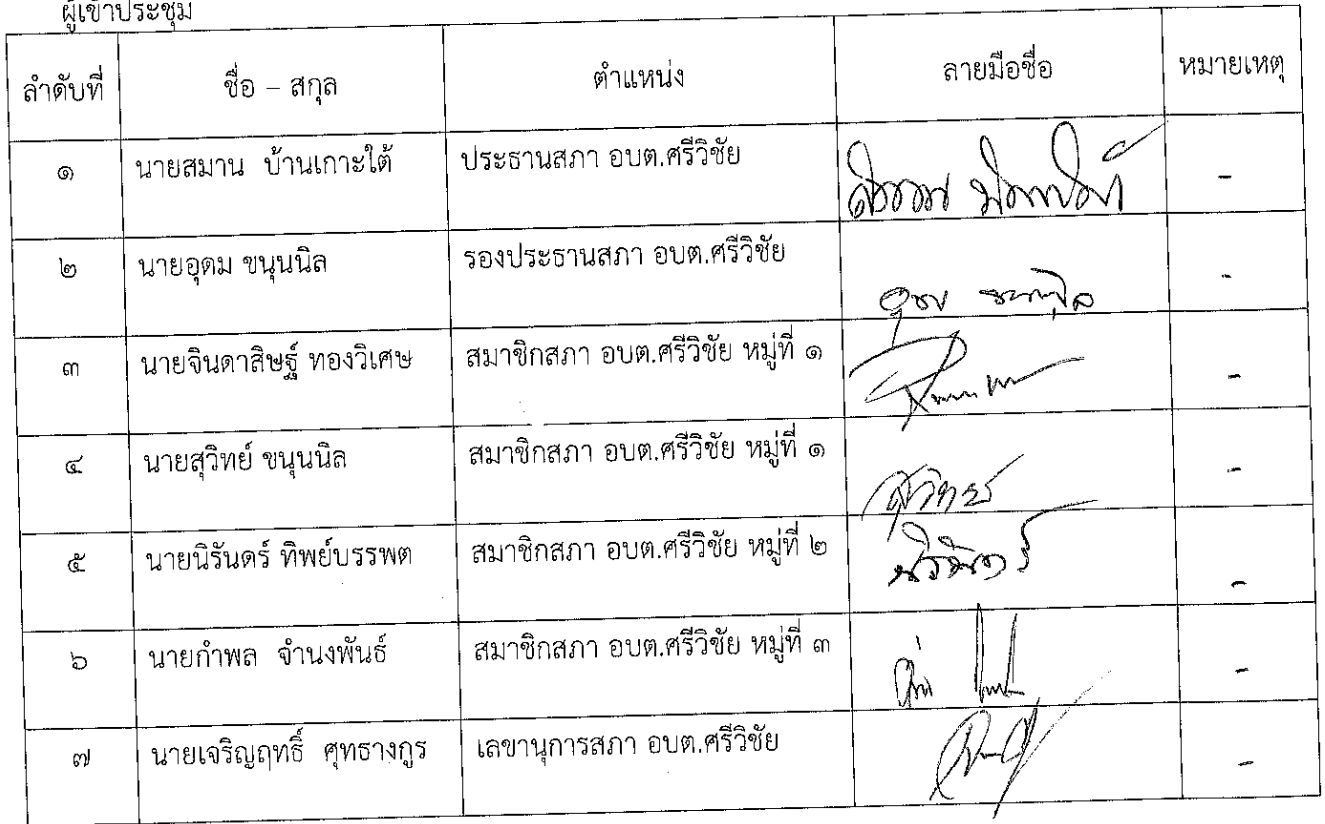 ผู้เข้าประชุม
ลำดับที่ ชื่อ – สกุล ตำแหน่ง ลายมือชื่อ หมายเหตุ
๑ นายสมาน บ้านเกาะใต้ ประธานสภา อบต.ศรีวิชัย -
๒ นายอุดม ขนุนนิล รองประธานสภา อบต.ศรีวิชัย -
๓ นายจินดาสิษฐ์ ทองวิเศษ สมาชิกสภา อบต.ศรีวิชัย หมู่ที่ ๑ -
๔ นายสุวิทย์ ขนุนนิล สมาชิกสภา อบต.ศรีวิชัย หมู่ที่ ๑ สุวิทย์ -
๕ นายนิรันดร์ ทิพย์บรรพต สมาชิกสภา อบต.ศรีวิชัย หมู่ที่ ๒ นิรันดร์ -
๖ นายกำพล จำนงพันธ์ สมาชิกสภา อบต.ศรีวิชัย หมู่ที่ ๓ -
๗ นายเจริญฤทธิ์ ศุทธางกูร เลขานุการสภา อบต.ศรีวิชัย -